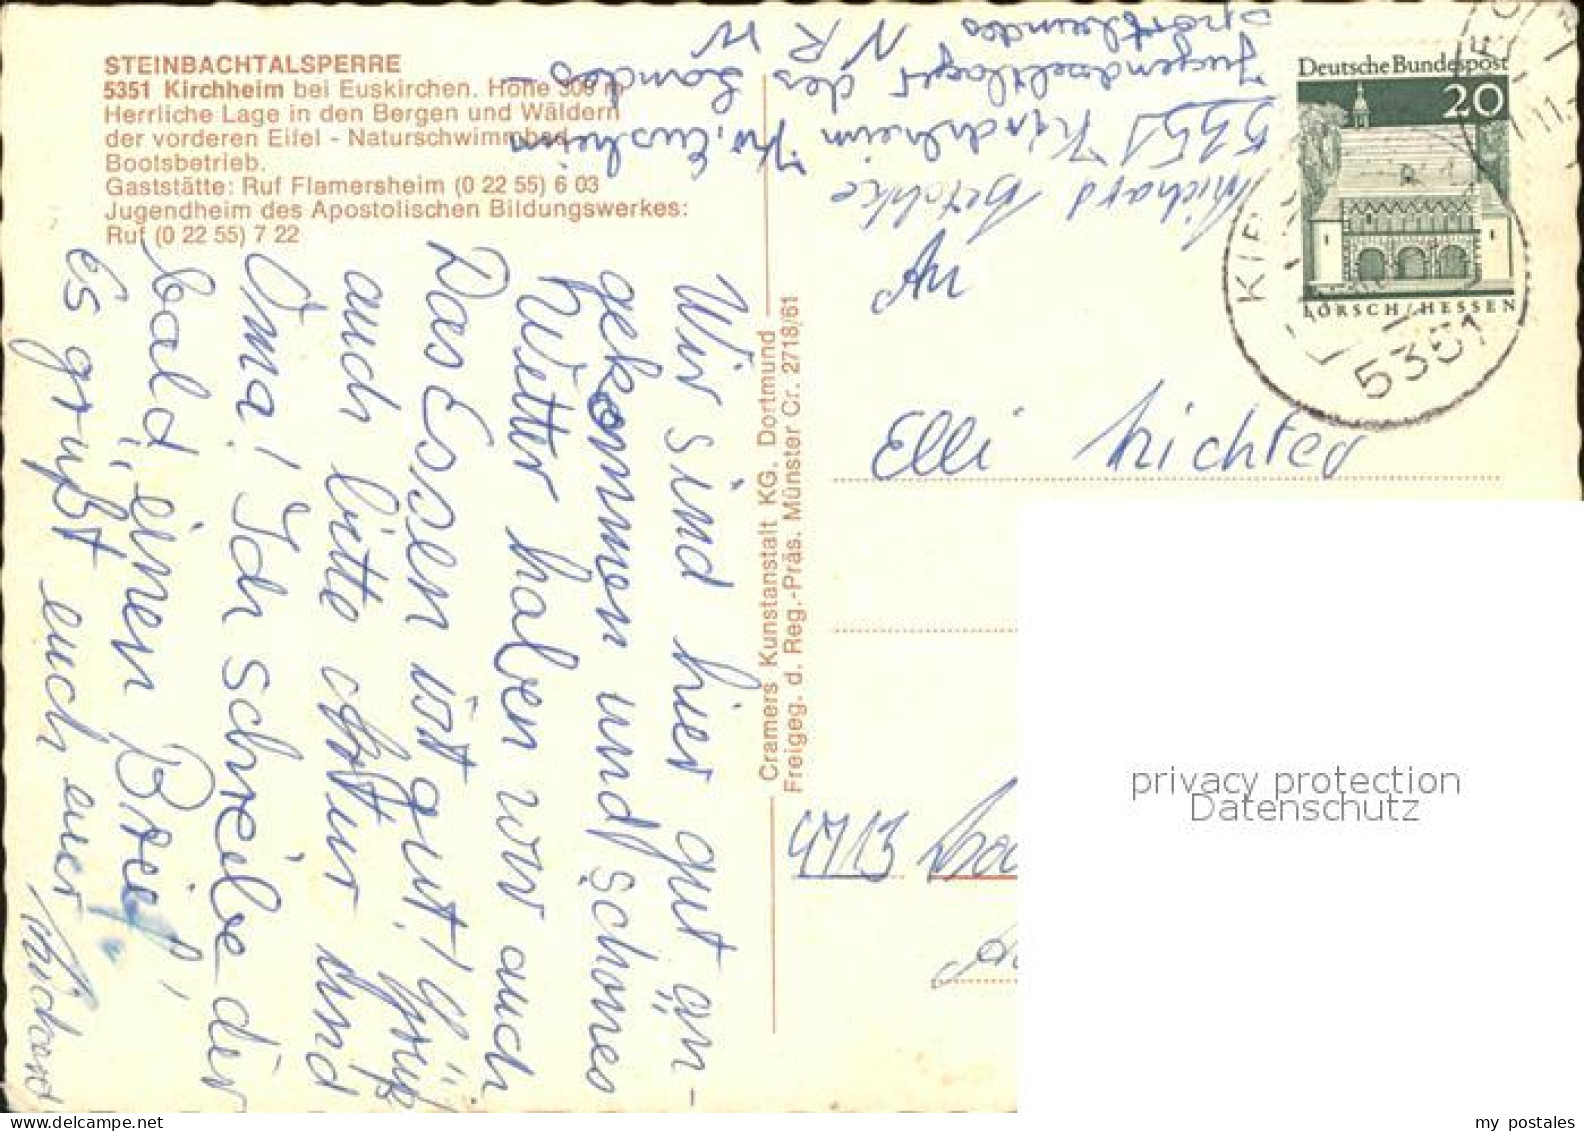 STEINBACHTALSPERRE
5351 Kirchheim bei Euskirchen. Höhe 300 m
Herrliche Lage in den Bergen und Wäldern
der vorderen Eifel - Naturschwimmbad
Bootsbetrieb.
Gaststätte: Ruf Flamersheim (0 22 55) 6 03
Jugendheim des Apostolischen Bildungswerkes:
Ruf (0 22 55) 7 22
Wir sind hier gut an-
gekommen und schönes
Wetter haben wir auch
Das Essen ist gut! Grüß
auch bitte und
Oma! Ich schreibe dir
bald einen Brief!
Es grüßt euch euer
Richard
Cramers Kunstanstalt KG. Dortmund
Freigeg. d. Reg.-Präs. Münster Cr. 2718/61
Richard
5351 Kirchheim
Jugendzeltlager des Landes-
Sportbundes NRW
Deutsche Bundespost
20
LORSCH/HESSEN
5351
An
Elli Richter
4713
privacy protection
Datenschutz
my postales